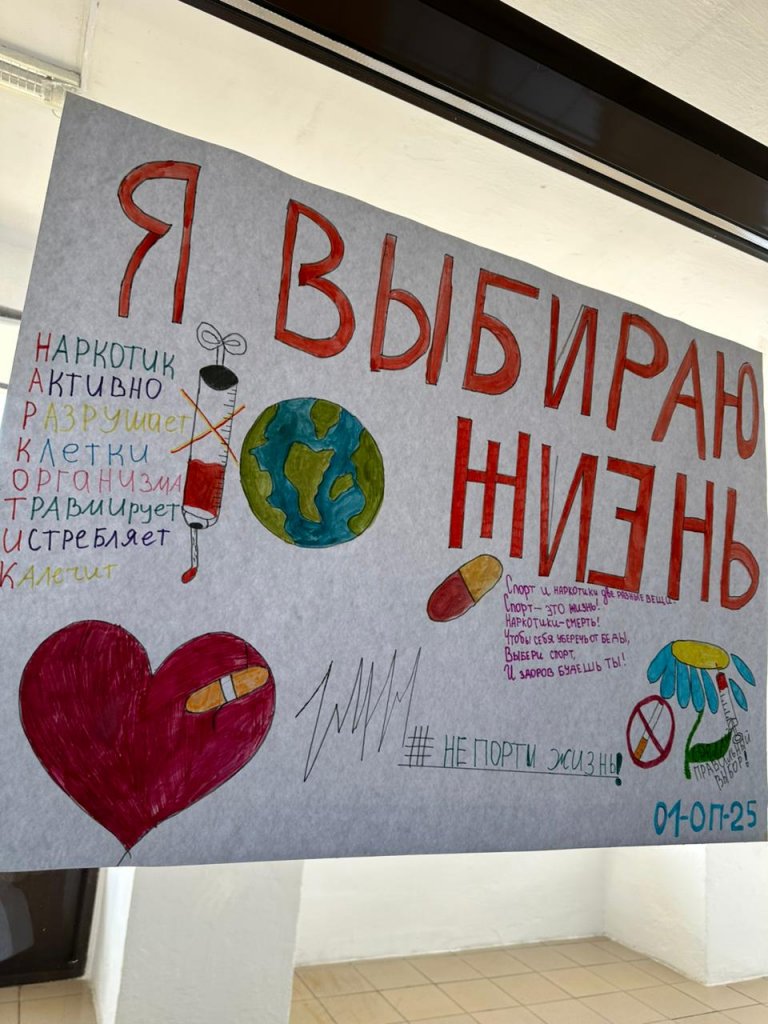 Я ВЫБИРАЮ
ЖИЗНЬ
НАРКОТИК
АКТИВНО
РАЗРУШАЕТ
КЛЕТКИ
ОРГАНИЗМА
ТРАВМИРУЕТ
ИСТРЕБЛЯЕТ
КАЛЕЧИТ
Спорт и наркотики две разные вещи.
Спорт – это жизнь!
Наркотики – смерть!
Чтобы себя уберечь от беды,
Выбери спорт,
И здоров будешь ты!
# НЕ ПОРТИ ЖИЗНЬ!
ПРАВИЛЬНЫЙ
ВЫБОР!
01-ОП-25